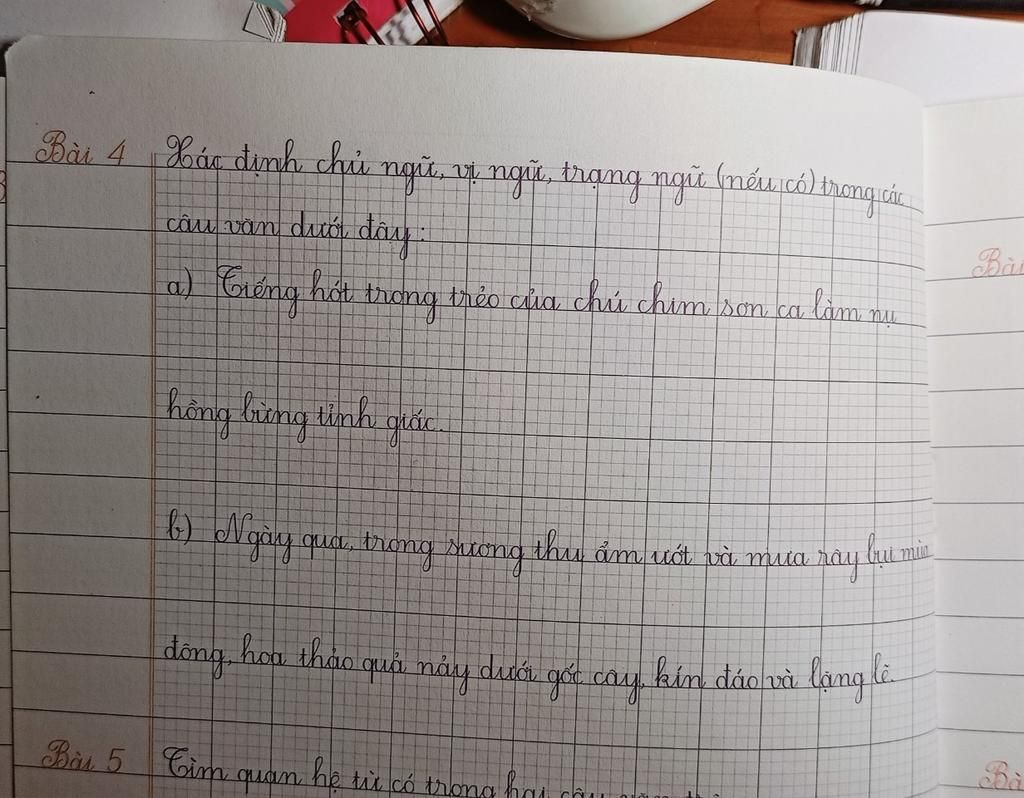 Bài 4 Xác định chủ ngữ, vị ngữ, trạng ngữ (nếu có) trong các
câu văn dưới đây:
a) Tiếng hót trong trẻo của chú chim sơn ca làm nụ
hồng bừng tỉnh giấc.
b) Ngày qua, trong sương thu ẩm ướt và mưa rây bụi mùa
đông, hoa thảo quả nảy dưới gốc cây, kín đáo và lặng lẽ.
Bài 5 Tìm quan hệ từ có trong hai câu
Bài
Bà